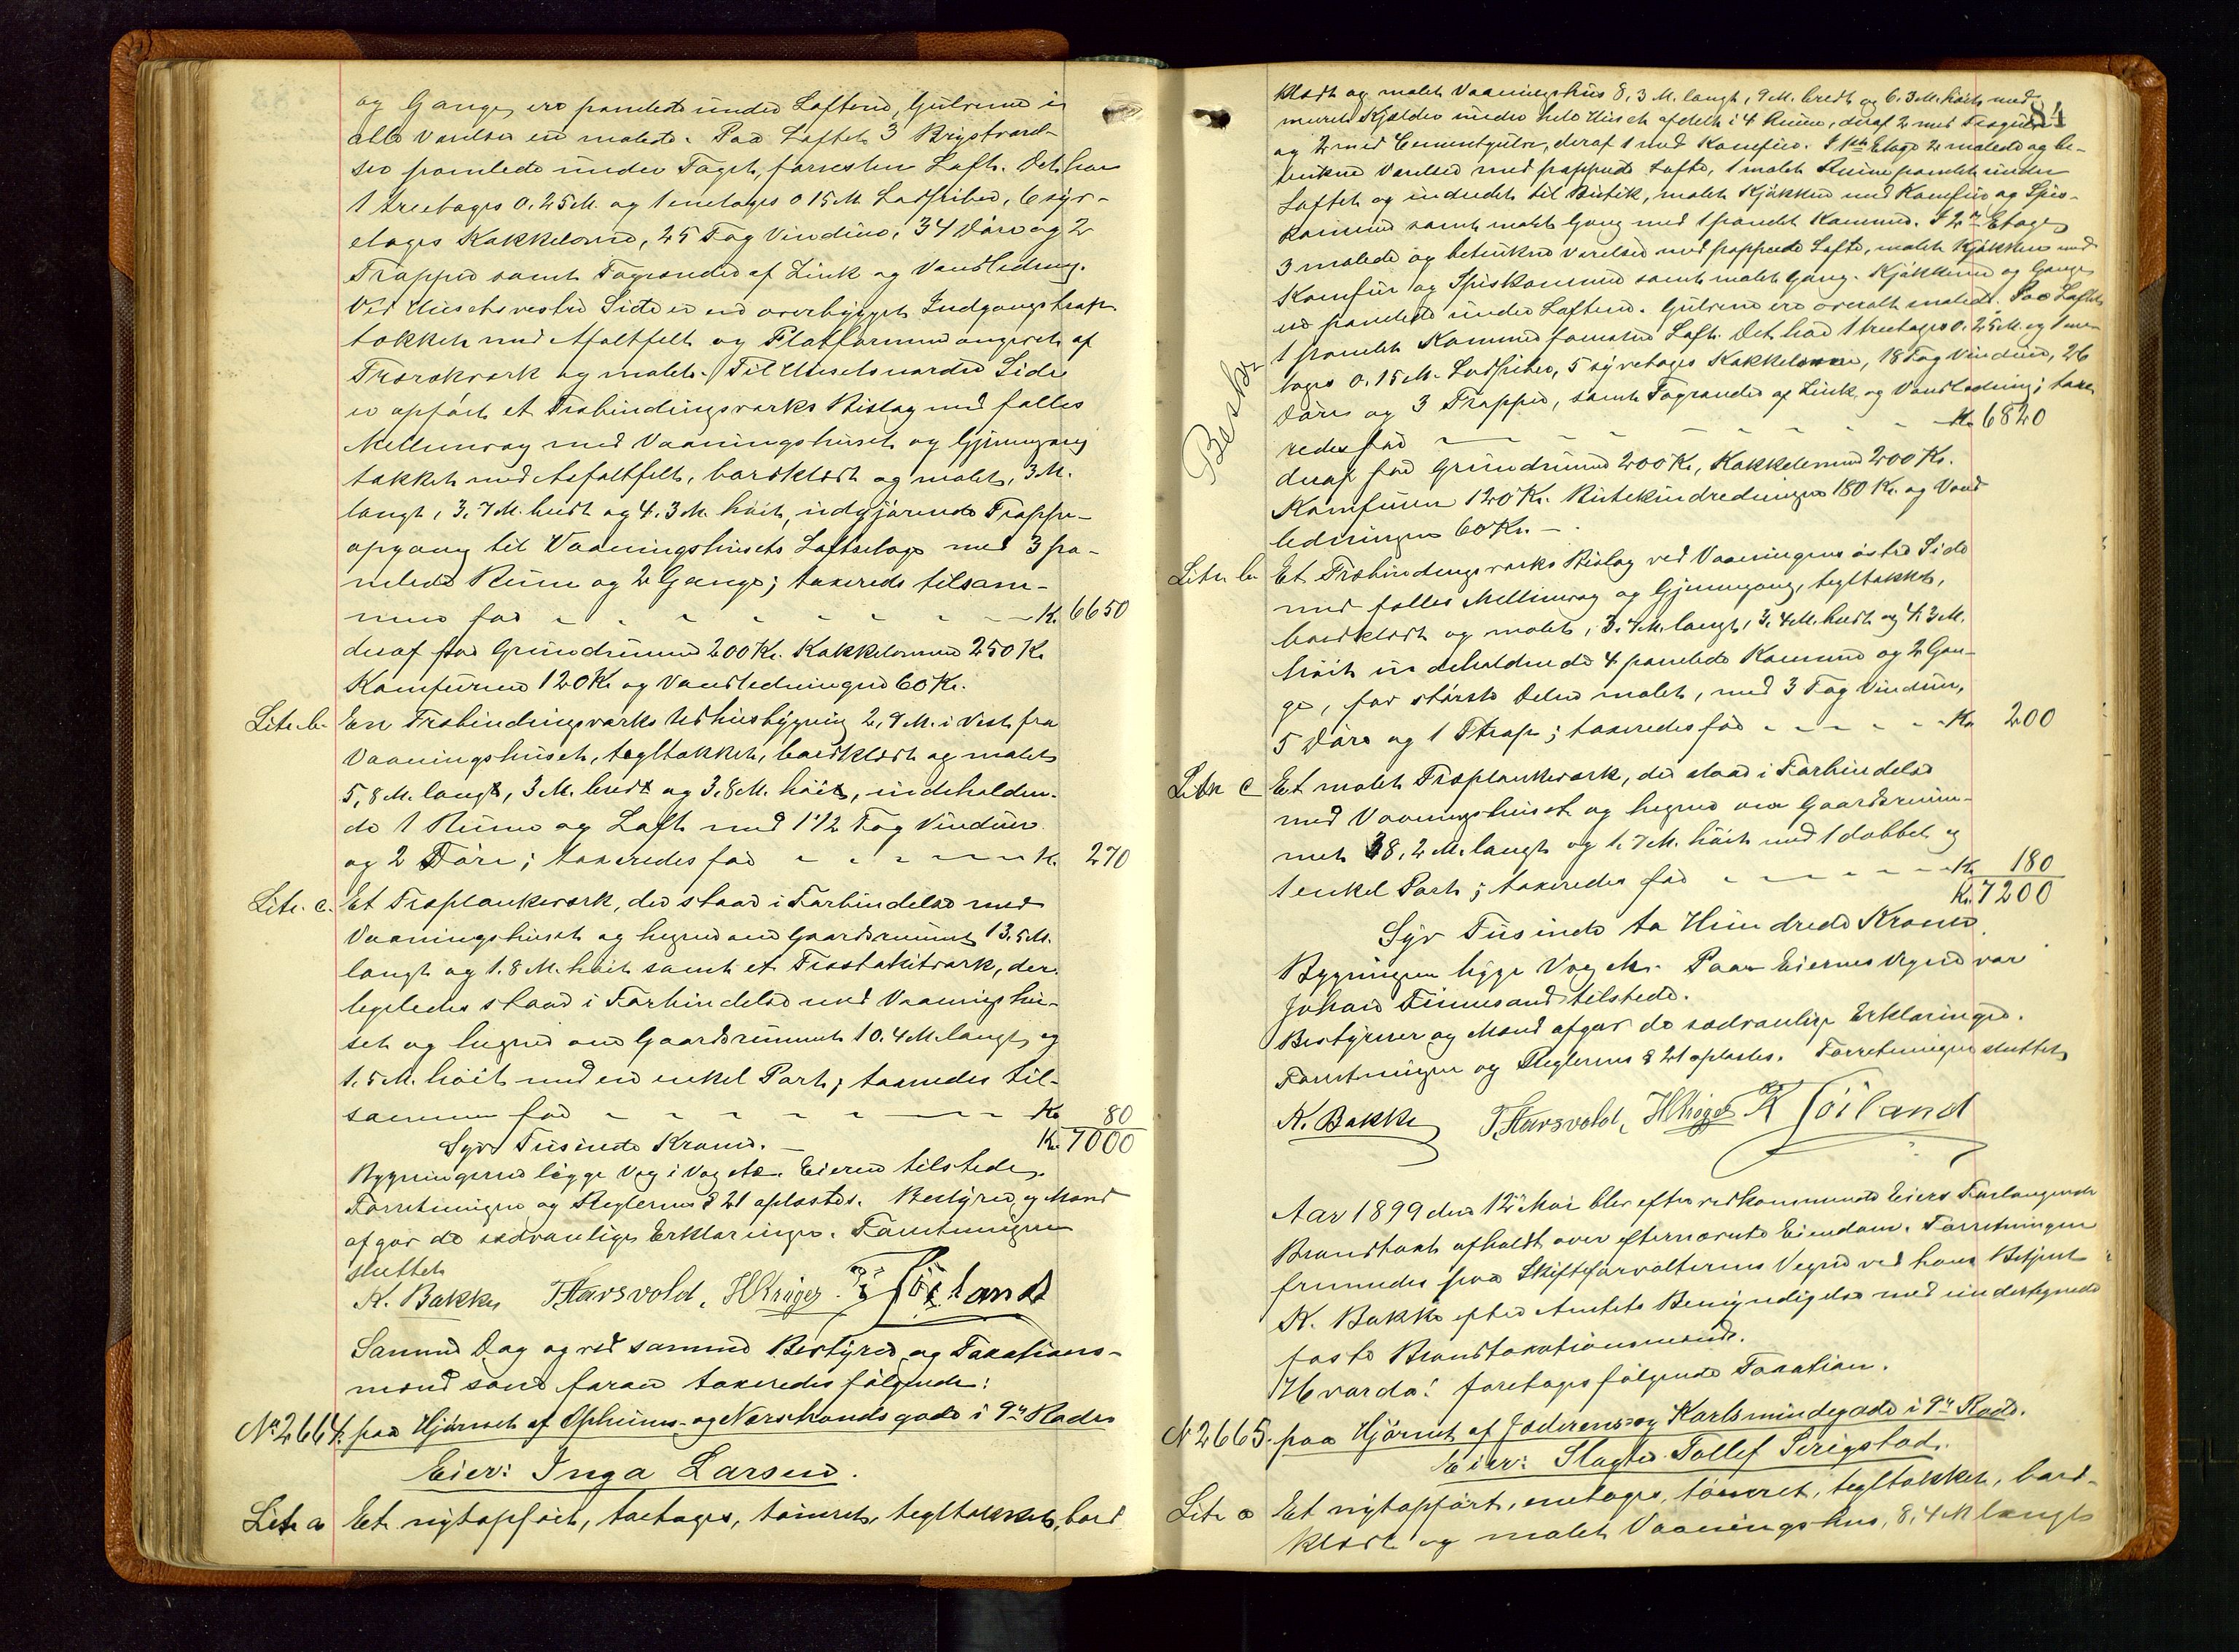 og Gange ere panelede under Lofterne, Gulvene i
alle Værelser ere malede. Paa Loftet 3 Kvistværel-
ser panelede under Taget, forresten Loft. Det har
1 treetages 0.25 M. og 1 enetages 0.15 M. Ladpiber, 6 syv-
etages Kakkelovne, 25 Fag Vinduer, 34 Döre og 2
Trapper samt Tagrender af Zink og Vandledning.
Ved Husets vestre Side er en overbygget Indgangstrap
tækket med Asfaltfelt og Platformen omgivet af
Trærækværk og malet. Til Husets nordre Side
er opfört et Træbindingsværks Bislag med fælles
Mellemvæg med Vaaningshuset og Gjennemgang
tækket med Asfaltfelt, bordklædt og malet, 3 M.
langt, 3.7 M. bredt og 4.3 M. höit, udgjörende Trappe-
opgang til Vaaningshusets Loftsetage med 3 pa-
nelede Rum og 2 Gange; taxeredes tilsam-
men for - - - - - - Kr. 6650
deraf for Grundmuren 200 Kr. Kakkelovnene 250 Kr
Komfurene 120 Kr og Vandledningen 60 Kr.
Litr. b. En Træbindingsværks Udhusbygning 2,9 M. i Vest fra
Vaaningshuset, tegltækket, bordklædt og malet
5,8 M. langt, 3 M. bredt og 3,8 M. höit, indeholden-
de 1 Rum og Loft med 1 1/2 Fag Vinduer
og 2 Döre; taxeredes for - - - - Kr. 270
Litr. c. Et Træplankeværk, der staar i Forbindelse med
Vaaningshuset og hegner om Gaardsrummet 13.5 M.
langt og 1.8 M. höit samt et Træstakitværk, der
ligeledes staar i Forbindelse med Vaaningshu-
set og hegner om Gaardsrummet 10.4 M. langt og
1.5 M. höit med en enkel Port; taxeredes til-
sammen for - - - - - Kr. 80
Syv Tusinde Kroner. - Kr. 7000
Bygningerne ligge Væg i Væg etc. Eieren tilstede.
Forretningen og Reglernes § 21 oplæstes. Bestyrer og Mænd
afgav de sædvanlige Erklæringer. Forretningen
sluttet
K. Bakke T. Aarsvold, H Kröger Söiland
Samme Dag og ved samme Bestyrer og Taxations-
mænd som foran taxeredes fölgende:
No 2664. paa Hjörnet af Ophuus- og Norskandsgade i 9de Rode
Eier: Inga Larsen.
Litr a Et nyopfört, toetages, tömret, tegltækket, bord
84
klædt og malet Vaaningshus 8,3 M. langt, 9 M. bredt og 6.3 M. höit med
muret Kjælder under hele Huset afdelt i 4 Rum, deraf 2 med Trægulv
og 2 med Cementgulv, deraf 1 med Komfur. I 1ste Etage 2 malede og be-
trukne Værelser med pappede Lofte, 1 malet Rum panelet under
Loftet og indredet til Butik, malet Kjökken med Komfur og Spis-
kammer samt malet Gang med 1 panelet Kammer. I 2den Etage
3 malede og betrukne Værelser med pappede Lofte, malet Kjökken med
Komfur og Spiskammer samt malet Gang. Kjökkener og Gange
er panelede under Lofterne. Gulvene ere overalt malede. Paa Loftet
1 panelet Kammer forresten Loft. Det har 1 treetages 0.25 M. og 1 ene-
tages 0.15 M. Ladpiber, 5 syvetages Kakkelovne, 18 Fag Vinduer, 26
Döre og 3 Trapper, samt Tagrender af Zink og Vandledning; taxe-
redes for - - - - - - Kr. 6820
deraf for Grundmuren 200 Kr, Kakkelovnene 200 Kr.
Komfurene 120 Kr. Butikindredningen 180 Kr. og Vand
ledningen 60 Kr. -
Litr. b Et Træbindingsværks Bislag ved Vaaningens östre Side
med fælles Mellemvæg og Gjennemgang, tegltækket,
bordklædt og malet, 3.7 M. langt, 3.4 M. bredt og 4.3 M.
höit indeholdende 4 panelede Kammer og 2 Gan-
ge, for störste Delen malet, med 3 Fag Vinduer,
5 Döre og 1 Trap; taxeredes for - - - - Kr 200
Litr c Et malet Træplankeværk, der staar i Forbindelse
med Vaaningshuset og hegner om Gaardsrum-
met 8,2 M. langt og 1.7 M. höit med 1 dobbelt og
1 enkel Port; taxeredes for - - - - - Kr. 180
Kr. 7200
Syv Tusinde to Hundrede Kroner.
Bygningen ligge Væg etc. Paa Eiernes Vegne var
Johan tilstede.
Bestyrer og Mænd afgav de sædvanlige Erklæringer.
Forretningen og Reglernes § 21 oplæstes. Forretningen sluttet
K. Bakke T. Aarsvold, H Kröger Söiland
Aar 1899 den 12te Mai blev efter vedkommende Eiers Forlangende
Brandtaxt afholdt over efternævnte Eiendom. Forretningen
fremmedes paa Skifteforvalterens Vegne ved hans Betjent
K. Bakke efter Amtets Bemyndigelse med undertegnede
faste Brandtaxationsmænd.
Hvorda! foretoges fölgende Taxation.
N 2665. paa Hjörnet af Jæderens- og Karlsmindegade i 9de Rode.
Eier: Slagter Tollef Serigstad.
Litr a Et nyopfört, enetages, tömret, tegltækket, bord-
klædt og malet Vaaningshus, 8,4 M langt